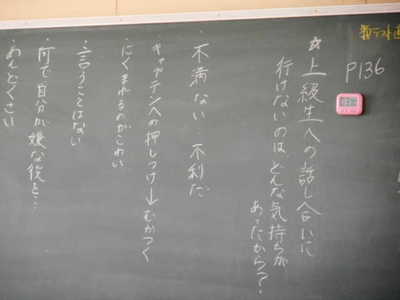 P136
☆上級生への話し合いに
行けないのは、どんな気持ちが
あったから? 
・不満ない…不利だ
・キャプテンへの押しつけ→むかつく
・にくまれるのがこわい
・言うことはない
・何で自分が嫌な役を…
めんどくさい